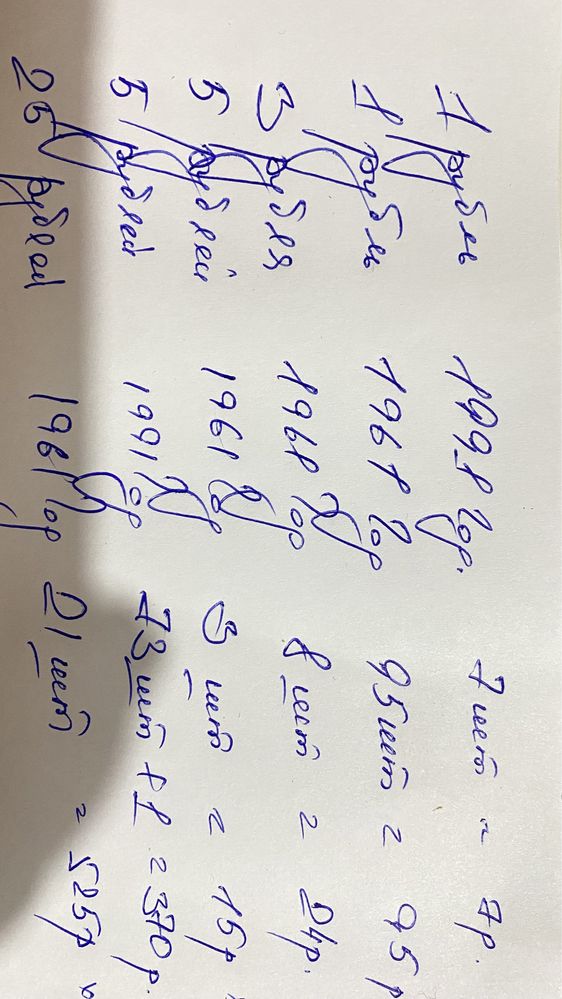 1 рубль 1991 год. 7 шт = 7р.
1 рубль 1961 год 95 шт = 95р
3 рубля 1961 год 8 шт = 24р.
5 рублей 1961 год 3 шт = 15р
5 рублей 1991 год 73 шт +1 = 370р.
25 рублей 1961 год 21 шт = 525р